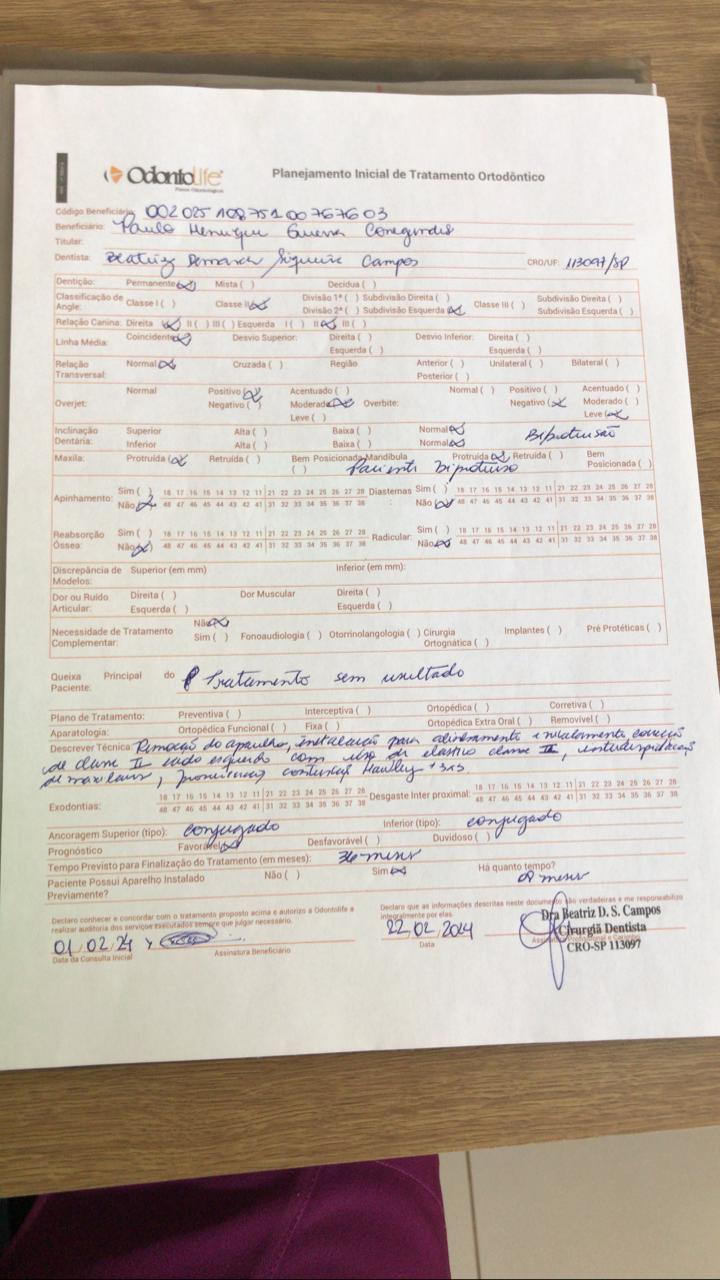 OdontoLife
Planos Odontológicos
Planejamento Inicial de Tratamento Ortodôntico
Código Beneficiário: 00202510875100767603
Beneficiário: Paulo Henrique Guerra
Titular:
Dentista: Beatriz Siqueira Campos CRO/UF: 113097/SP
Dentição: Permanente (x) Mista ( ) Decídua ( )
Classificação de Angle: Classe I ( ) Classe II (x) Divisão 1ª ( ) Subdivisão Direita ( ) Classe III ( ) Subdivisão Direita ( )
Divisão 2ª ( ) Subdivisão Esquerda (x) Subdivisão Esquerda ( )
Relação Canina: Direita I (x) II ( ) III ( ) Esquerda I ( ) II (x) III ( )
Linha Média: Coincidente (x) Desvio Superior: Direita ( ) Desvio Inferior: Direita ( )
Esquerda ( ) Esquerda ( )
Relação Transversal: Normal (x) Cruzada ( ) Região Anterior ( ) Unilateral ( ) Bilateral ( )
Posterior ( )
Normal Positivo (x) Acentuado ( ) Normal ( ) Positivo ( ) Acentuado ( )
Overjet: Negativo ( ) Moderado (x) Overbite: Negativo (x) Moderado ( )
Leve ( ) Leve (x)
Inclinação Dentária: Superior Alta ( ) Baixa ( ) Normal (x) Biprotusão
Inferior Alta ( ) Baixa ( ) Normal (x)
Maxila: Protruída (x) Retruída ( ) Bem Posicionada ( ) Mandíbula Protruída (x) Retruída ( ) Bem Posicionada ( )
Paciente biprotuso
Apinhamento: Sim ( ) 18 17 16 15 14 13 12 11 21 22 23 24 25 26 27 28 Diastemas: Sim ( ) 18 17 16 15 14 13 12 11 21 22 23 24 25 26 27 28
Não (x) 48 47 46 45 44 43 42 41 31 32 33 34 35 36 37 38 Não (x) 48 47 46 45 44 43 42 41 31 32 33 34 35 36 37 38
Reabsorção Óssea: Sim ( ) 18 17 16 15 14 13 12 11 21 22 23 24 25 26 27 28 Radicular: Sim ( ) 18 17 16 15 14 13 12 11 21 22 23 24 25 26 27 28
Não (x) 48 47 46 45 44 43 42 41 31 32 33 34 35 36 37 38 Não (x) 48 47 46 45 44 43 42 41 31 32 33 34 35 36 37 38
Discrepância de Modelos: Superior (em mm) Inferior (em mm):
Dor ou Ruído Articular: Direita ( ) Dor Muscular Direita ( )
Esquerda ( ) Esquerda ( )
Não (x)
Necessidade de Tratamento Complementar: Sim ( ) Fonoaudiologia ( ) Otorrinolangologia ( ) Cirurgia Ortognática ( ) Implantes ( ) Pré Protéticas ( )
Queixa Principal do Paciente: Tratamento sem resultado
Plano de Tratamento: Preventiva ( ) Interceptiva ( ) Ortopédica ( ) Corretiva ( )
Aparatologia: Ortopédica Funcional ( ) Fixa ( ) Ortopédica Extra Oral ( ) Removível ( )
Descrever Técnica: Remoção do aparelho, instalação para alinhamento e nivelamento correção
de classe II lado esquerdo com uso de elastico classe II, intercuspidação
de maxilares, contenção Hawley + 3x3
Exodontias: 18 17 16 15 14 13 12 11 21 22 23 24 25 26 27 28 Desgaste Inter proximal: 18 17 16 15 14 13 12 11 21 22 23 24 25 26 27 28
48 47 46 45 44 43 42 41 31 32 33 34 35 36 37 38 48 47 46 45 44 43 42 41 31 32 33 34 35 36 37 38
Ancoragem Superior (tipo): conjugado Inferior (tipo): conjugado
Prognóstico Favorável (x) Desfavorável ( ) Duvidoso ( )
Tempo Previsto para Finalização do Tratamento (em meses): 36 meses
Paciente Possui Aparelho Instalado Previamente? Não ( ) Sim (x) Há quanto tempo? meses
Declaro conhecer e concordar com o tratamento proposto acima e autorizo a Odontolife a
realizar auditoria dos serviços executados sempre que julgar necessário.
Declaro que as informações descritas neste documento são verdadeiras e me responsabilizo
integralmente por elas.
01/02/24 22/02/2024
Data da Consulta Inicial Assinatura Beneficiário Data
Dra Beatriz D. S. Campos
Cirurgiã Dentista
CRO-SP 113097